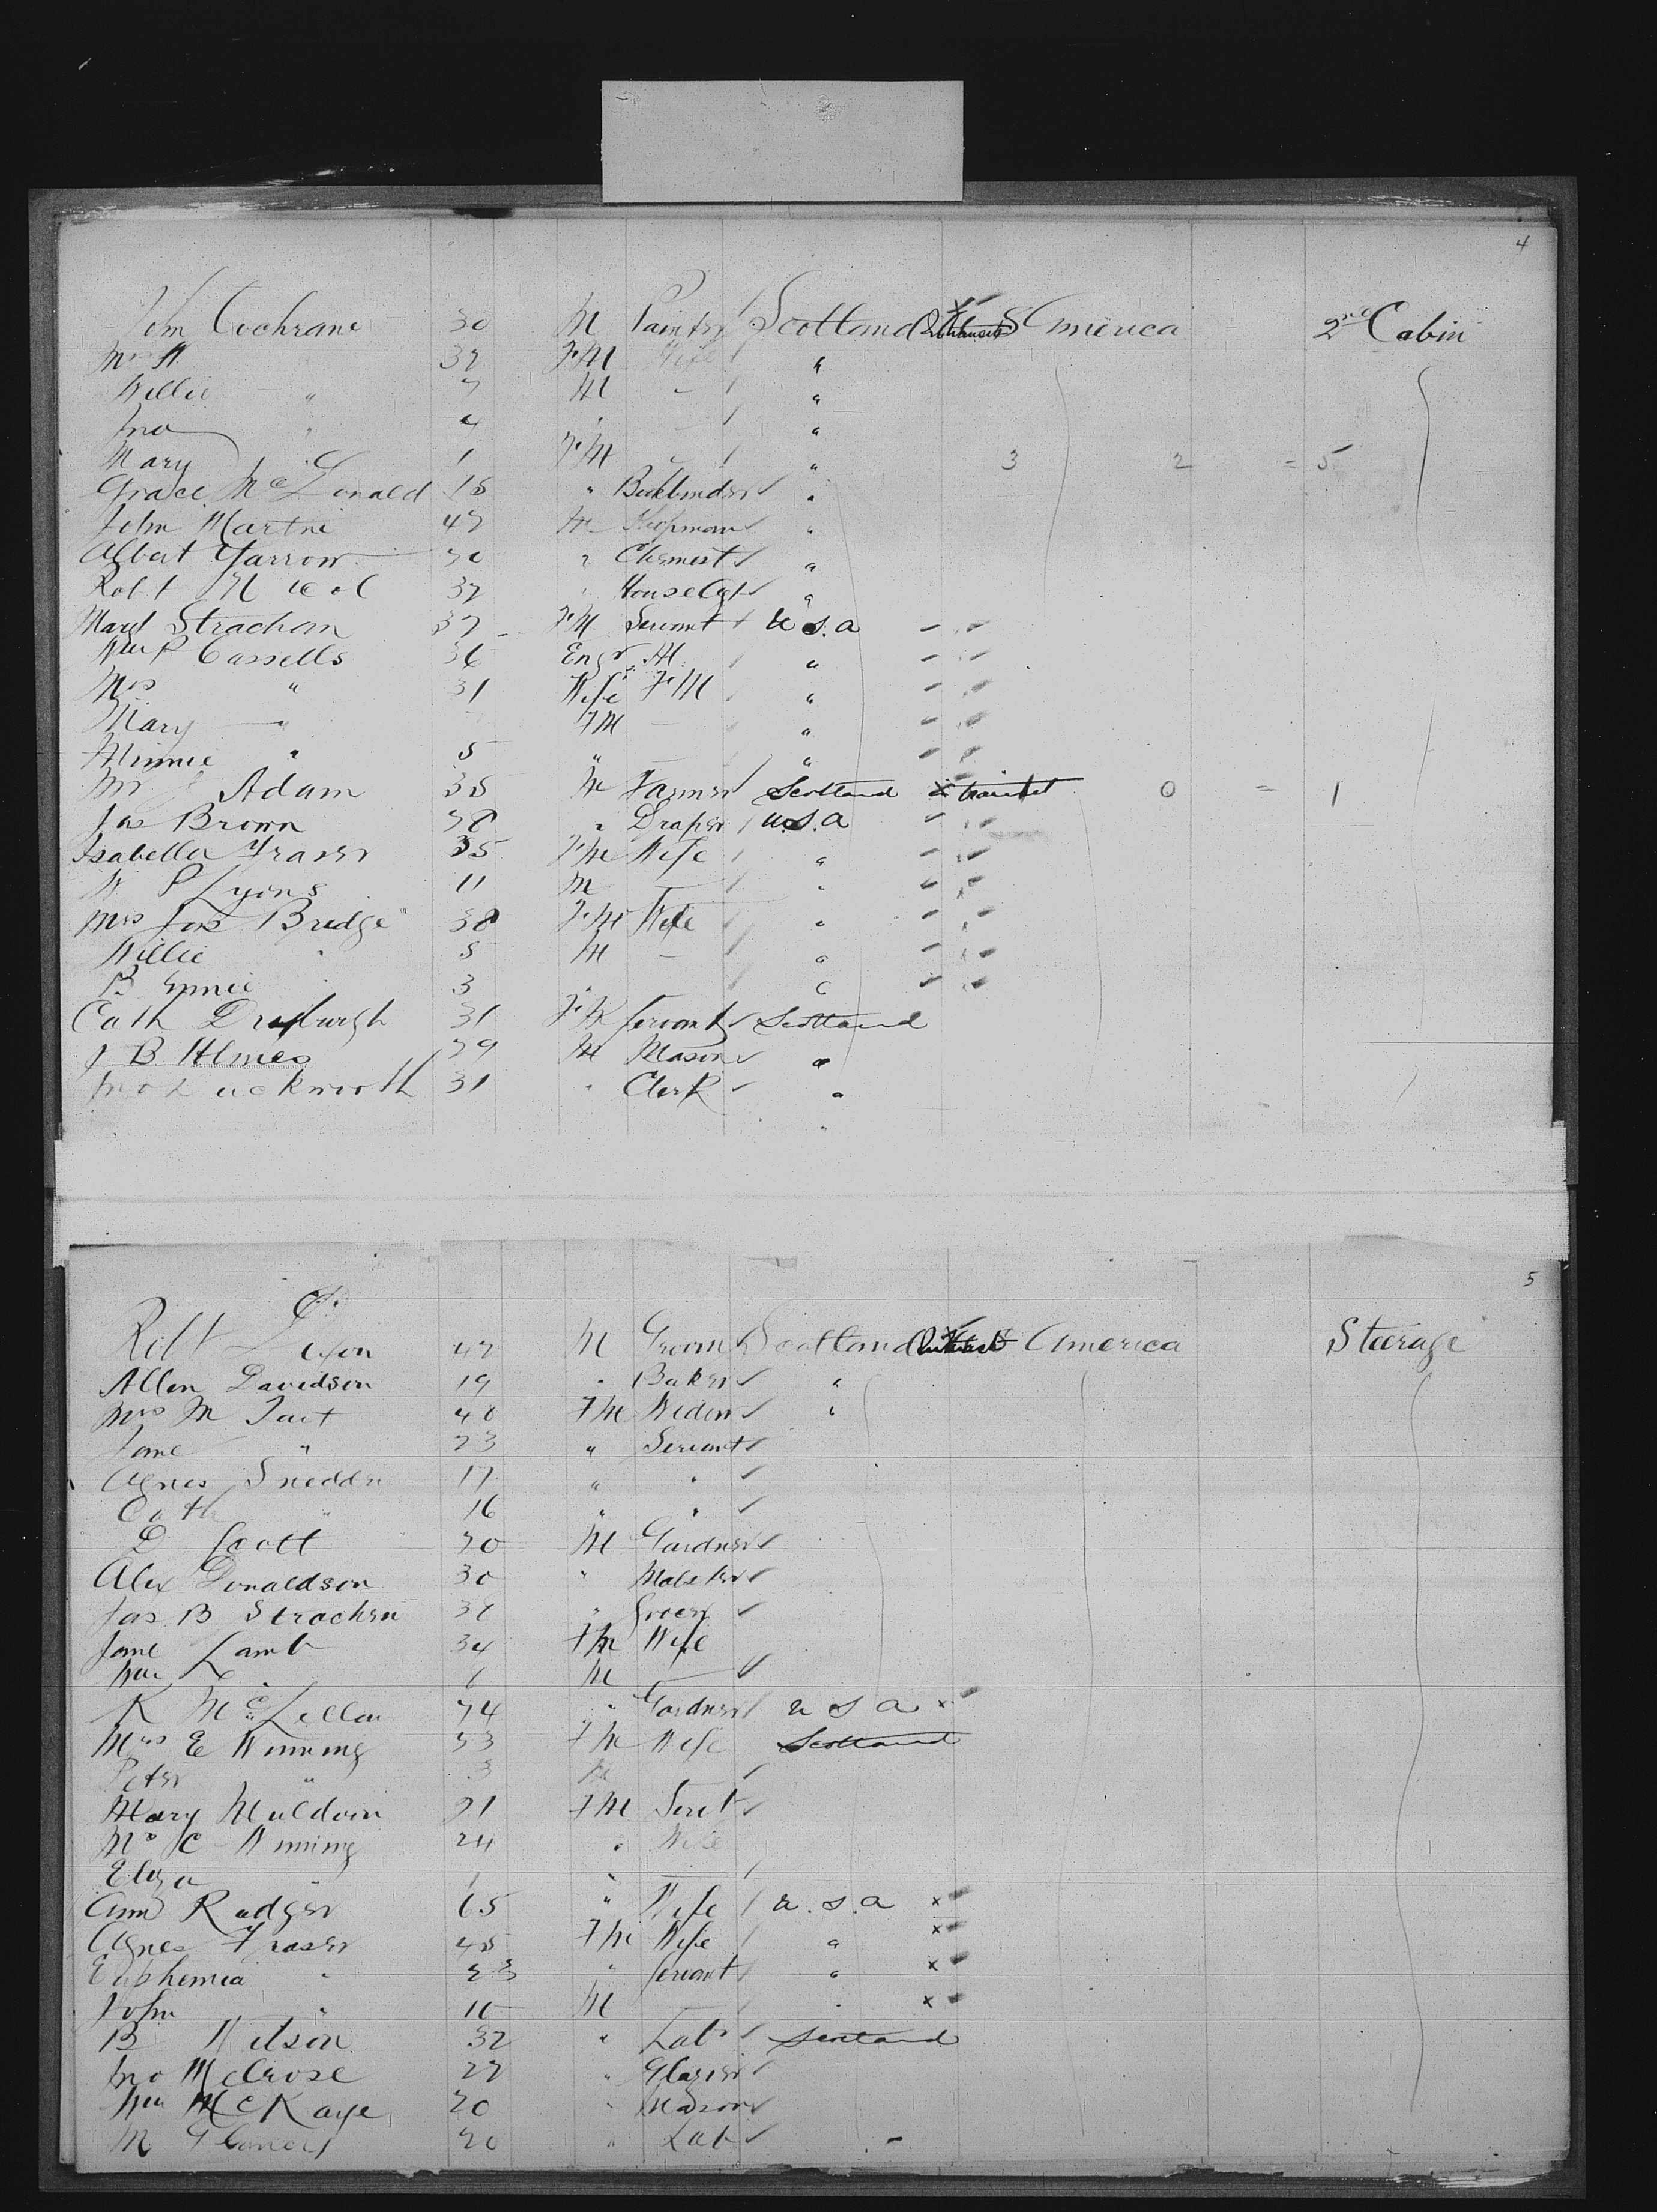 4
John Cochrane 30 M Painter Scotland U S America 2nd Cabin
Mrs A 32 FM Wife "
Willie " 7 M - "
Jno " 4 " - "
Mary " 1 FM " 3 2 = 5
Grace McDonald 18 " Bookbinder "
John Martin 47 M Shopman "
Albert Yarrow 30 " Chemist "
Robt 32 " "
Margt Strachan 37 FM Servant U.S.A
Wm P Cassells 36 Engr M "
Mrs " 31 Wife FM "
Mary " FM "
Minnie " 5 " "
Mr Adam 35 M Farmer Scotland 0 = 1
Jas Brown 38 " Draper U.S.A
Isabella Fraser 35 FM Wife "
W P Lyons 11 M "
Mrs Jas Bridge 38 FM Wife "
Willie " 5 M - "
3 "
Cath Dryburgh 31 FM Servant Scotland
J B Holmes 29 M Mason "
Jno Luckworth 31 " Clerk "
5
Robt Dixon 47 M Groom Scotland U S America Steerage
Allen Davidson 19 " Baker "
Mrs M Tait 48 FM Widow "
Jane " 23 " Servant
Agnes Snedden 17 " "
Cath " 16 " "
D Scott 20 M Gardner
Alex Donaldson 30 " Malster
Jas B Strachen " Grocer
Jane Lamb 34 FM Wife
Wm L M
K McLellan 24 " Gardner U S A
Mrs E Winning 33 FM Wife Scotland
Peter " 3 M
Mary Muldoon 21 FM Servt
Mrs C Winning 24 " Wife
Eliza " 1 "
Ann Rodger 65 " Wife U.S.A
Agnes Fraser 45 FM Wife "
Euphemia " 23 " Servant "
John " M "
B Wilson 32 " Labr Scotland
Jno Melrose 27 " Glazier
Wm McKaye 20 " Mason
M 20 " Labr